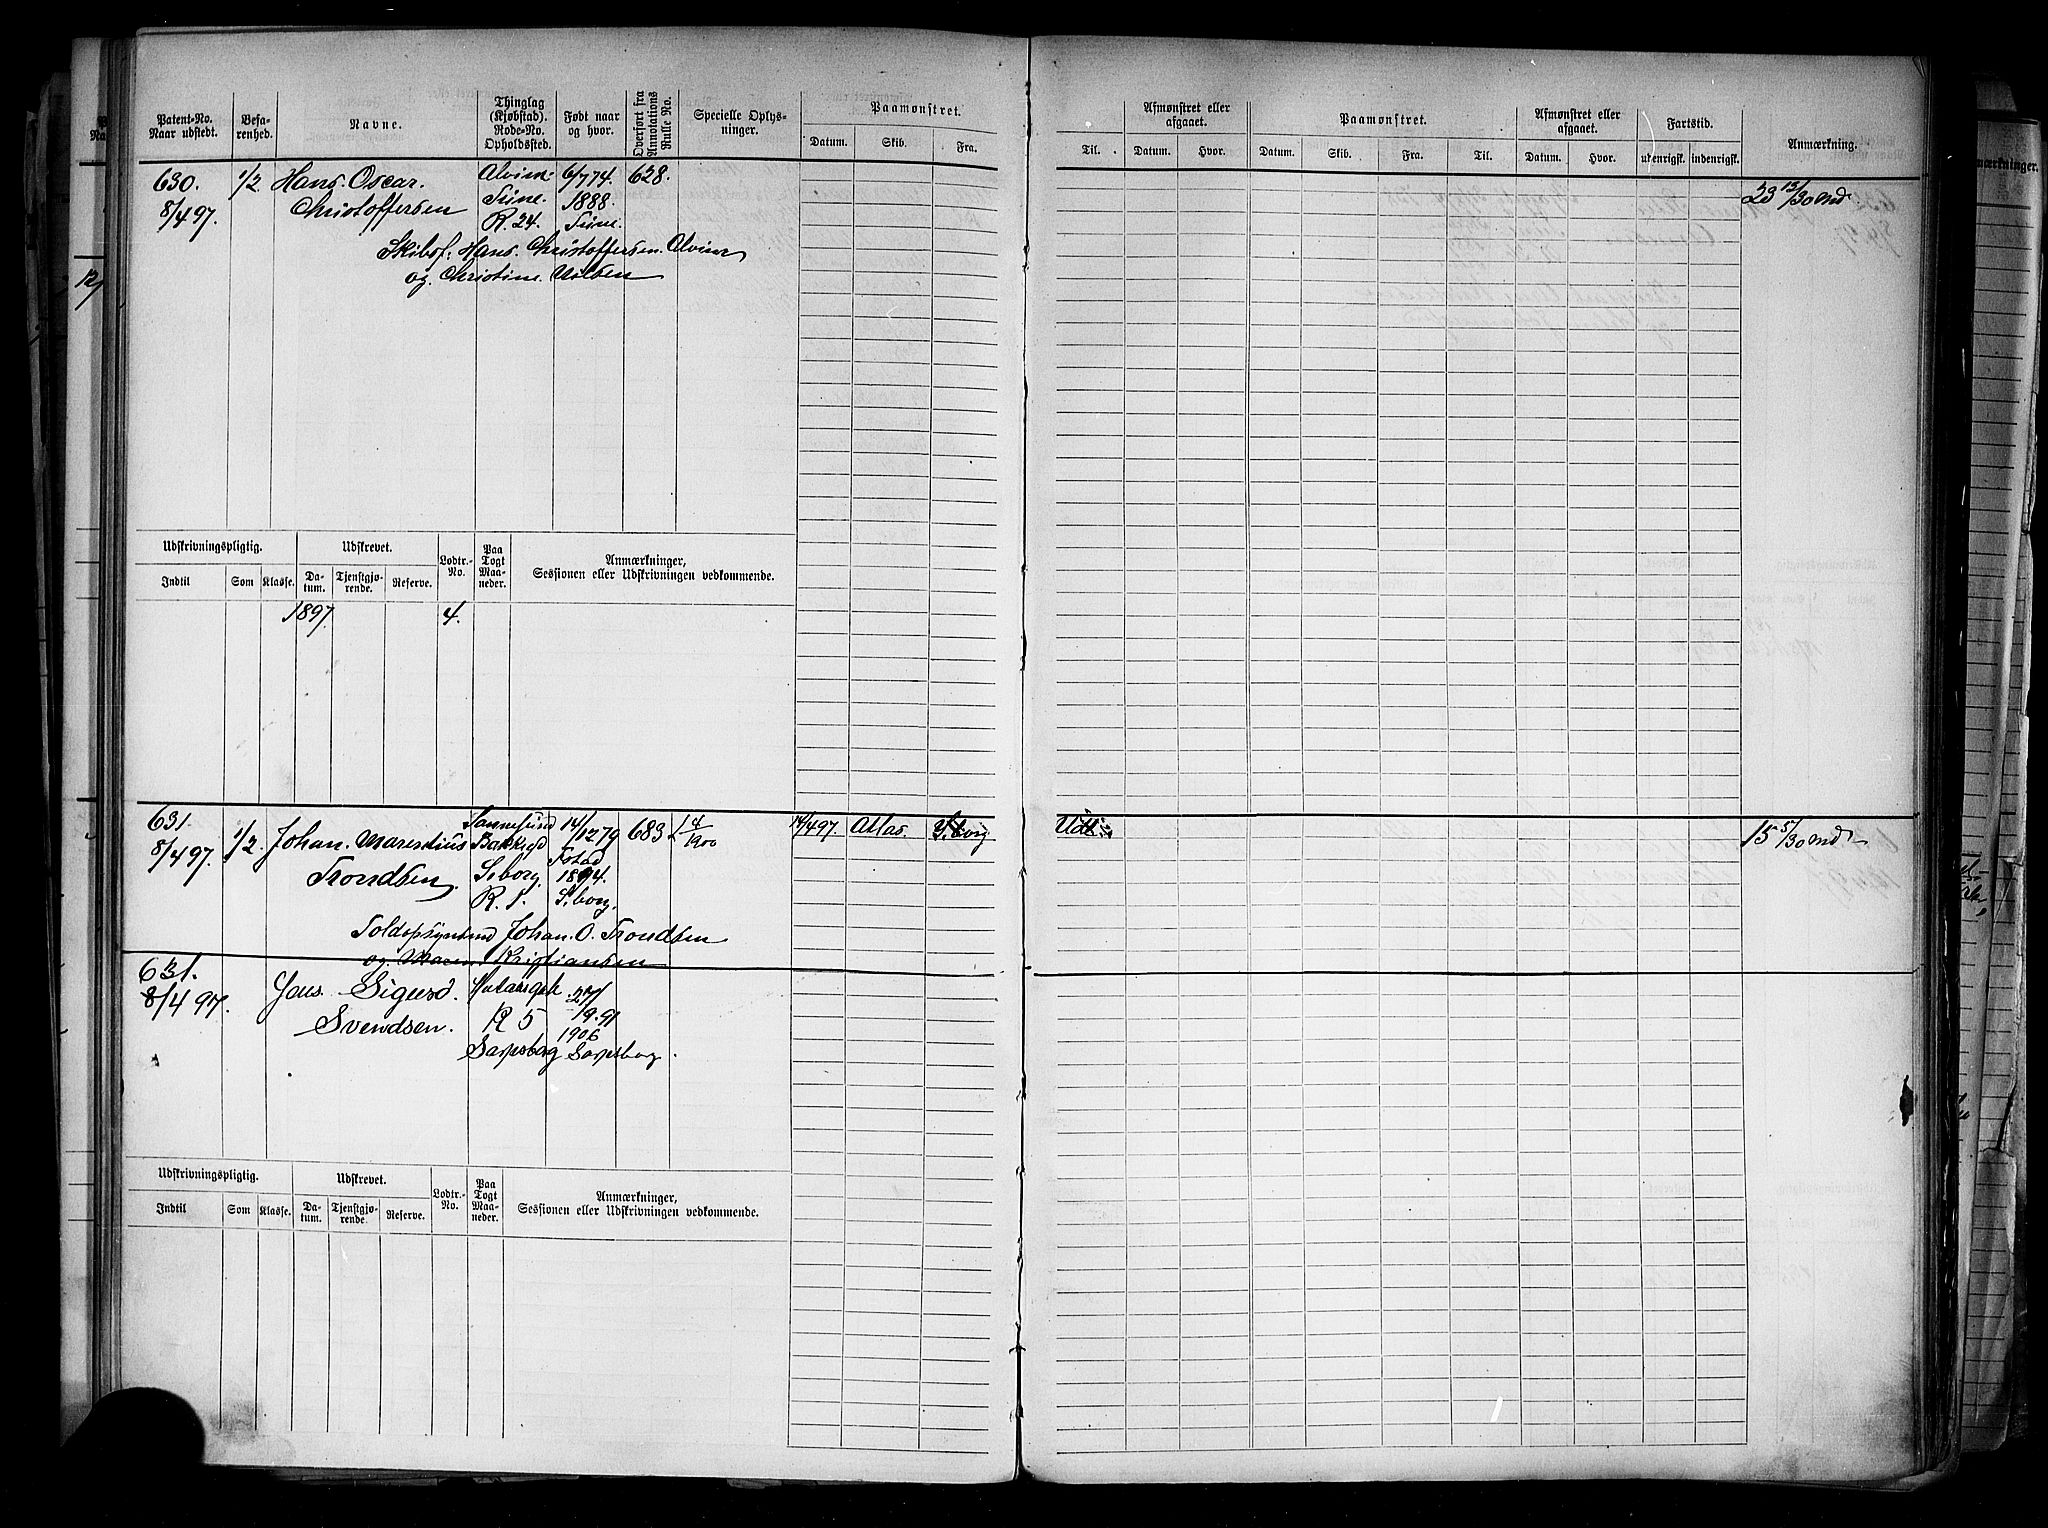 Patent-No. Naar udstedt.
Befa-renhed.
Navne.
Thinglag (Kjøbstad). Rode-No. Opholdssted.
Født naar og hvor.
Overført fra Annotations Rulle No.
Specielle Oplys-ninger.
Paamønstret.
Datum. Skib. Fra.
Til.
Afmønstret eller afgaaet.
Datum. Hvor.
Paamønstret.
Datum. Skib. Fra. Til.
Afmønstret eller afgaaet.
Datum. Hvor.
Fartstid.
utenrigsk. indenrigsk.
Anmærkning.
630. 1/2 Hans Oscar. Alvim 6/7 74. 628. 23 13/30 Md
8/4 97. Christoffersen Tune. 1888.
R. 24. Tune.
Skibsf. Hans Christoffersen Alvim
og Christine Nilsen
Udskrivningspligtig. Udskrevet. Lodtr.-No. Paa Togt Maa-neder. Anmærkninger,
Sessionen eller Udskrivningen vedkommende.
Indtil Som Klasse. Da-tum. Tjenstgjø-rende. Reserve.
1897. 4.
631. 1/2 Johan Marentius Sannesund 14/12 79 683 1 4/1900 14/4 97. Atlas. S.borg Udl. 15 5/30 Md
8/4 97. Trondsen
S.borg. 1894.
R. 1. S.borg.
Toldopsynsmd Johan O. Trondsen
og Maren Kristiansen
631. Jens Sigurd.
8/4 97. Svendsen. R 5 27/9.91
1906
Sarpsborg Sarpsborg.
Udskrivningspligtig. Udskrevet. Lodtr.-No. Paa Togt Maa-neder. Anmærkninger,
Sessionen eller Udskrivningen vedkommende.
Indtil Som Klasse. Da-tum. Tjenstgjø-rende. Reserve.